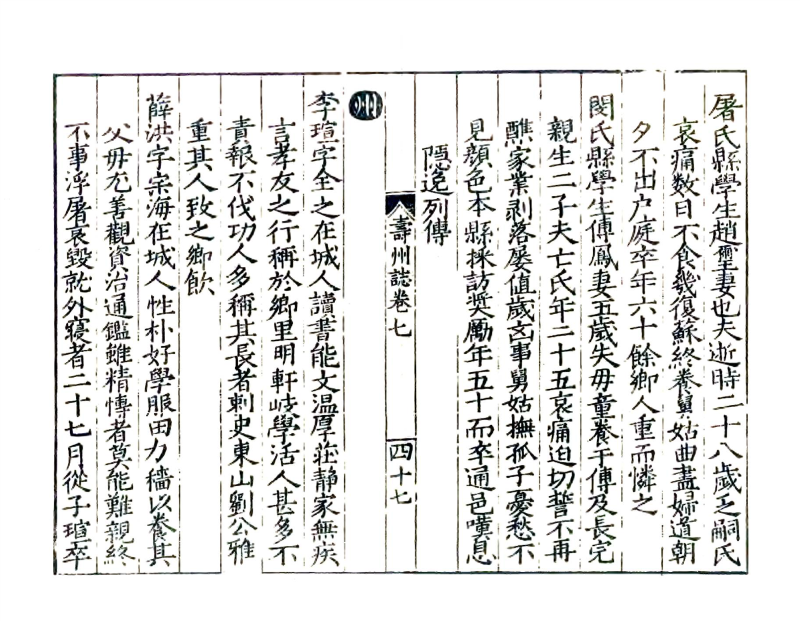 屠氏縣學生趙壐妻也夫逝時二十八歲乏嗣氏
哀痛数日不食幾復蘇終養舅姑曲盡婦道朝
夕不出户庭卒年六十餘鄉人重而憐之
閔氏縣學生傅鳳妻五歲失毋童養于傅及長完
親生二子夫亡氏年二十五哀痛迫切誓不再
醮家業剥落屡值歲凶事舅姑撫孤子憂愁不
見顔色本縣採訪奬勵年五十而卒通邑嘆息
隠逸列傳
壽州誌卷七
四十七
州
李瑄字全之在城人讀書能文温厚莊静家無疾
言孝友之行稱於鄉里明軒岐學活人甚多不
責報不伐功人多稱其長者刺史東山劉公雅
重其人致之鄉飲
薛洪字宗海在城人性朴好學服田力穡以養其
父毋尤善觀資治通鑑雖精慱者莫能難親終
不事浮屠哀毀就外寢者二十七月從子瑄卒